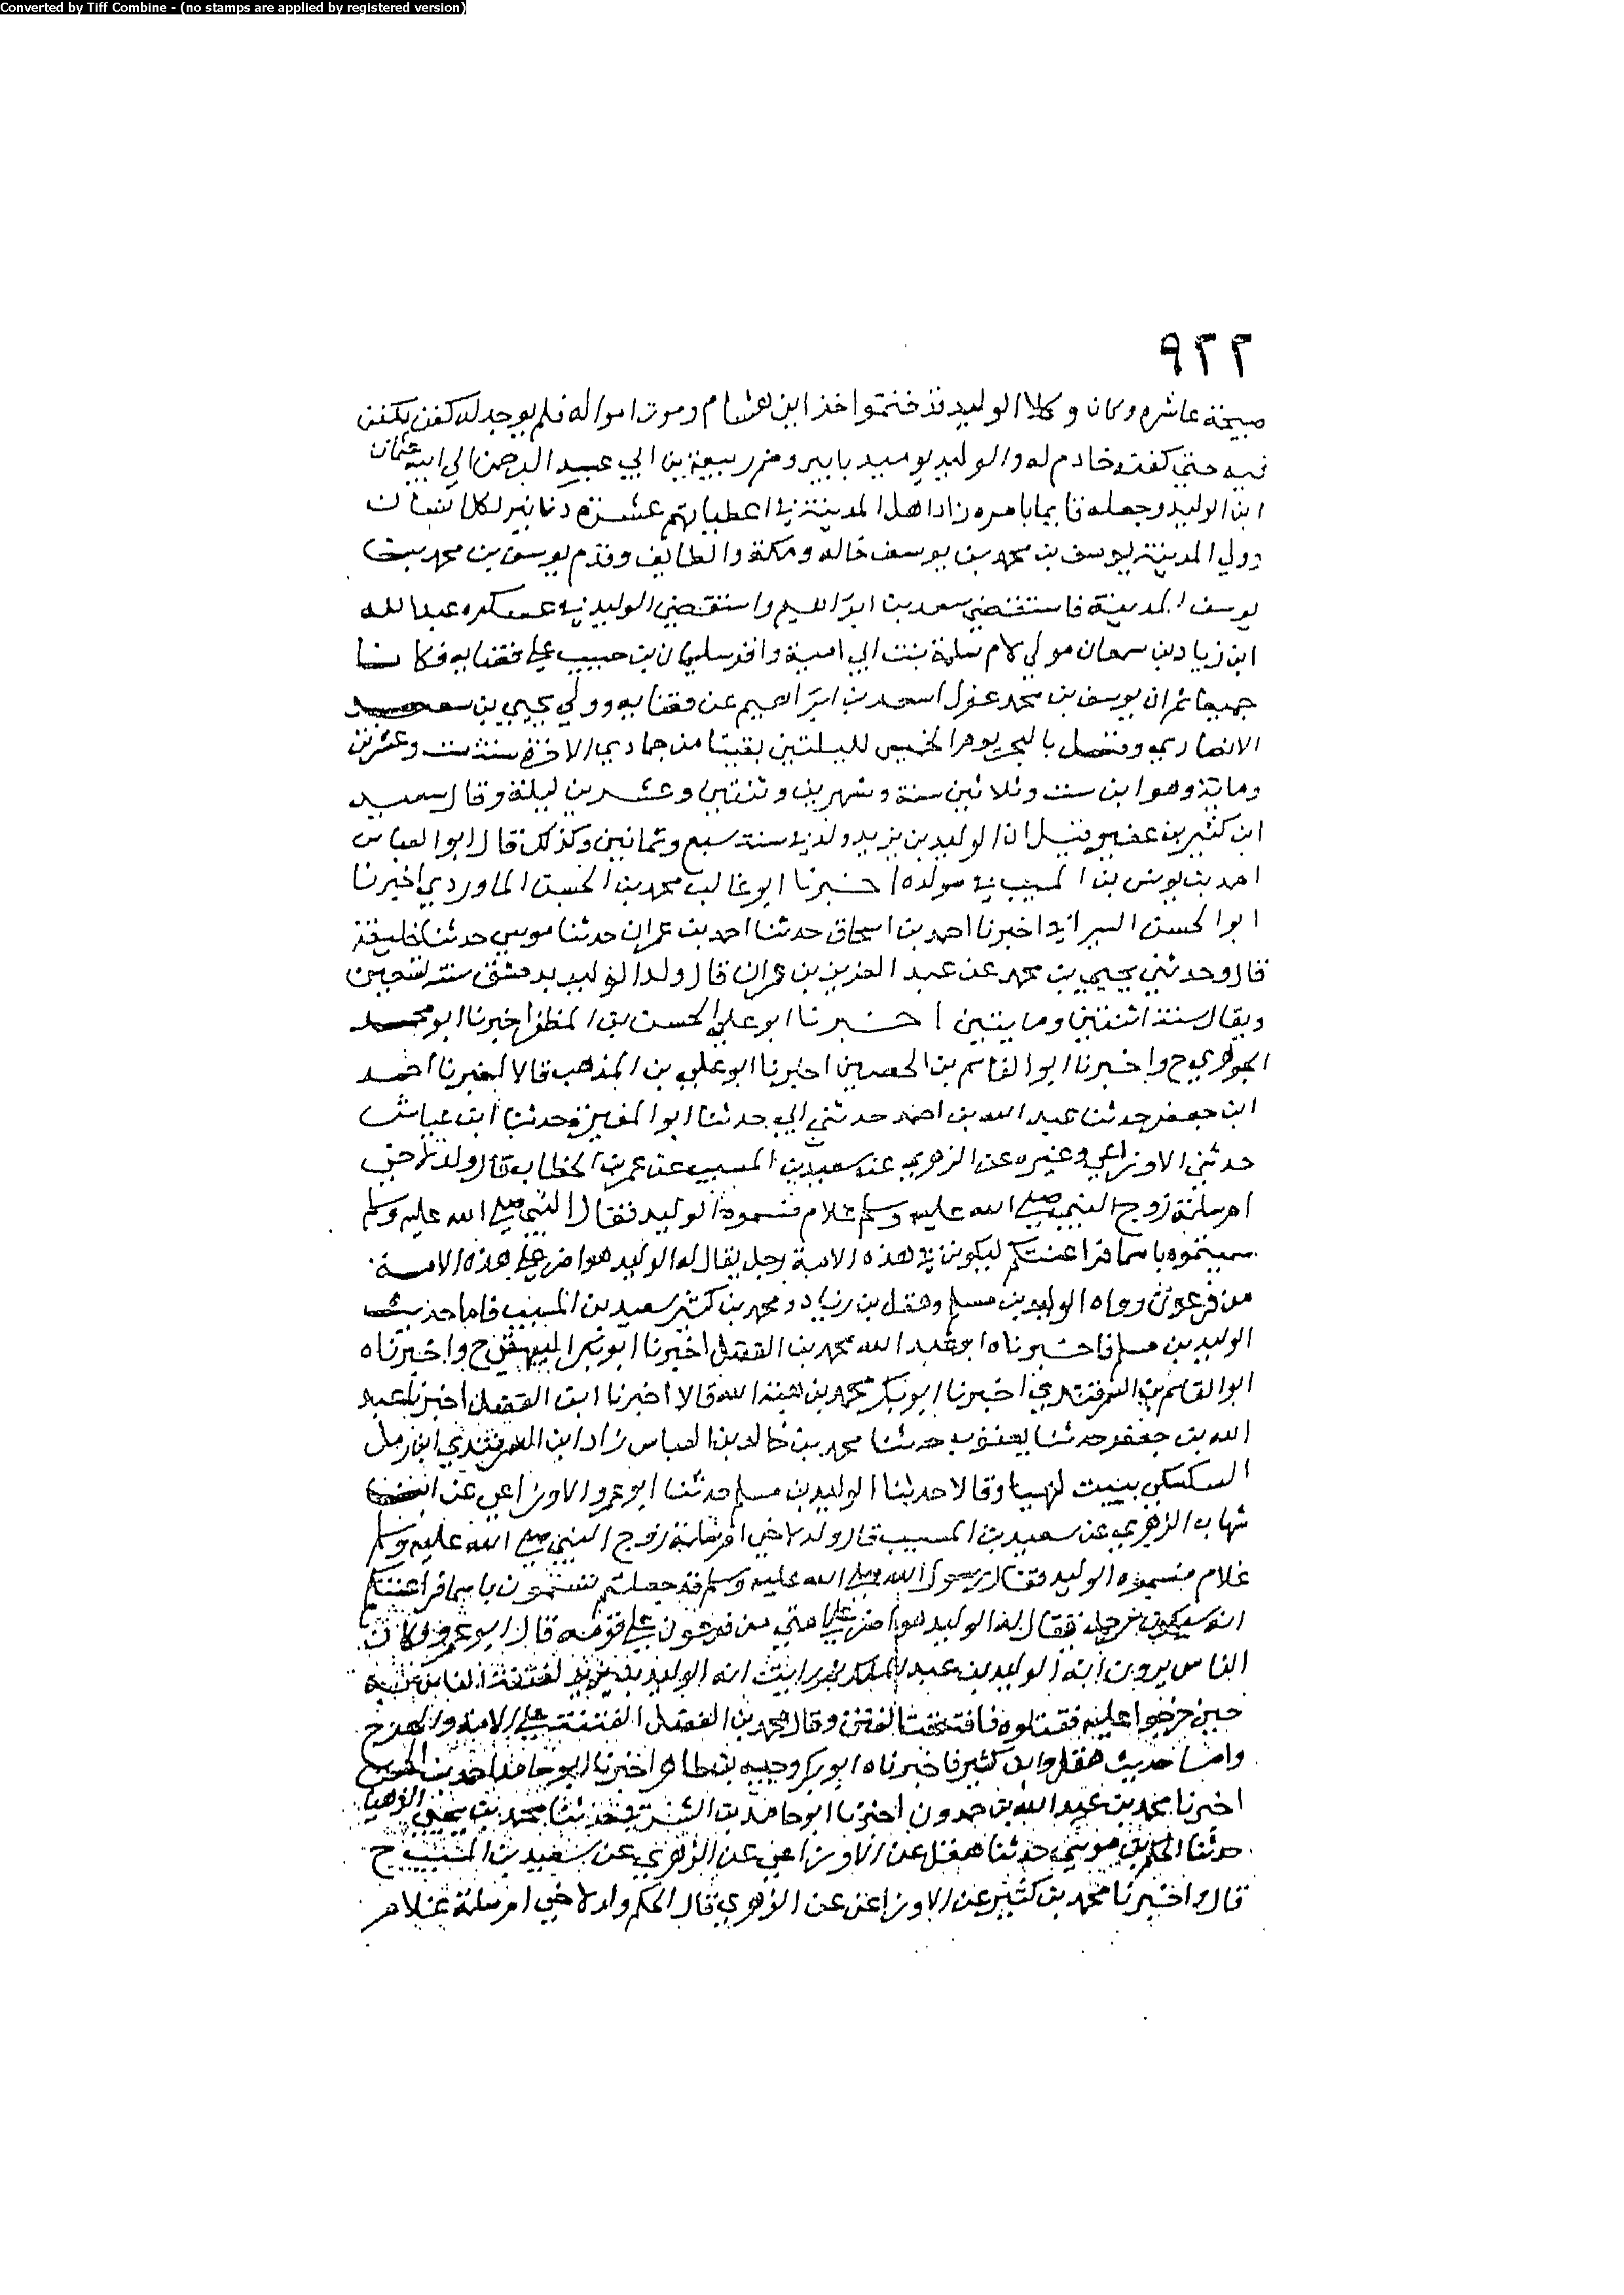 Converted by Tiff Combine - (no stamps are applied by registered version)
٩٢٢
صبيحة عاشره وكان وكلا الوليد قد ختموا خزاين هشام وموت امواله فلم يوجد له كفن يكفن
فيه حتي كفنه خادم له والوليد يوميد بابير وضر ربيعة بن ابي عبيد الرحمن الي ابيه عثمان
ابن الوليد وجعله قايما بامره زاد اهل المدينة في اعطياتهم عشرة دنانير لكل انسان
وولي المدينة يوسف بن محمد بن يوسف خاله ومكة والطايف وقدم يوسف بن محمد بن
يوسف المدينة فاستقضي سعد بن ابراهيم واستقضي الوليد في عسكره عبد الله
ابن زياد بن سمعان مولي لام سلمة بنت ابي امية واقر سليمان بن حبيب علي قضايه فكانا
جميعا ثم ان يوسف بن محمد عزل سعد بن ابراهيم عن قضايه وولي يحيي بن سعيد
الانصاري وقتل بالبحر يوم الخميس لليلتين بقيتا من جمادي الاخرة سنة ست وعشرين
وماية وهو ابن ست وثلاثين سنة وشهرين وثنتين وعشرين ليلة وقال سعيد
ابن كثير بن عفير قيل ان الوليد بن يزيد ولد في سنة سبع وثمانين وكذلك قال ابو العباس
احمد بن يونس بن المسيب في مولده اخبرنا ابو غالب محمد بن الحسن الماوردي اخبرنا
ابو الحسن السيرافي اخبرنا احمد بن اسحاق حدثنا احمد بن عمران حدثنا موسي حدثنا خليفة
قال وحدثني يحيي بن محمد عن عبد العزيز بن عمران قال ولد الوليد بدمشق سنة تسعين
ويقال سنة اثنتين ومايتين اخبرنا ابو علي الحسن بن المظفر اخبرنا ابو محمد
الجوهري ح واخبرنا ابو القاسم بن الحصين اخبرنا ابو علي بن المذهب قالا اخبرنا احمد
ابن جعفر حدثنا عبد الله بن احمد حدثني ابي حدثنا ابو المغيرة حدثنا ابن عياش
حدثني الاوزاعي وغيره عن الزهري عن سعيد بن المسيب عن عمر بن الخطاب قال ولد لاخي
ام سلمة زوج النبي صلي الله عليه وسلم غلام فسموه الوليد فقال النبي صلي الله عليه وسلم
سميتموه باسما فراعنتكم ليكونن في هذه الامة رجل يقال له الوليد هو اضر علي هذه الامة
من فرعون رواه الوليد بن مسلم وهقل بن زياد ومحمد بن كثير سعيد بن المسيب فاما حديث
الوليد بن مسلم فاخبرناه ابو عبد الله محمد بن الفضل اخبرنا ابو بكر البيهقي ح واخبرناه
ابو القاسم بن السمرقندي اخبرنا ابو بكر محمد بن هبة الله قالا اخبرنا ابن الفضل اخبرنا عبد
الله بن جعفر حدثنا يعقوب حدثنا محمد بن خالد بن العباس زاد ابن السمرقندي ابن زمل
السكسكي ببيت لهيا وقالا حدثنا الوليد بن مسلم حدثنا ابو عمرو الاوزاعي عن ابن
شهاب الزهري عن سعيد بن المسيب قال ولد لاخي ام سلمة زوج النبي صلي الله عليه وسلم
غلام فسموه الوليد فقال رسول الله صلي الله عليه وسلم قد جعلتم تسمون باسما فراعنتكم
انه سيكون رجل يقال له الوليد هو اضر علي امتي من فرعون علي قومه قال ابو عمرو فكان
الناس يرون انه الوليد بن عبد الملك ثم راينا انه الوليد بن يزيد لفتنة الناس به
حين خرجوا عليه فقتلوه فافتتحت الفتن وقال محمد بن الفضل الفتنة علي الامة والهرج
واما حديث هقل وابن كثير فاخبرناه ابو بكر وجيه بن طاهر اخبرنا ابو حامد احمد بن الحسن
اخبرنا محمد بن عبد الله بن حمدون اخبرنا ابو حامد بن الشرقي حدثنا محمد بن يحيي الذهلي
حدثنا الحكم بن موسي حدثنا هقل عن الاوزاعي عن الزهري عن سعيد بن المسيب ح
قال واخبرنا محمد بن كثير عن الاوزاعي عن الزهري قال الحكم ولد لاخي ام سلمة غلام